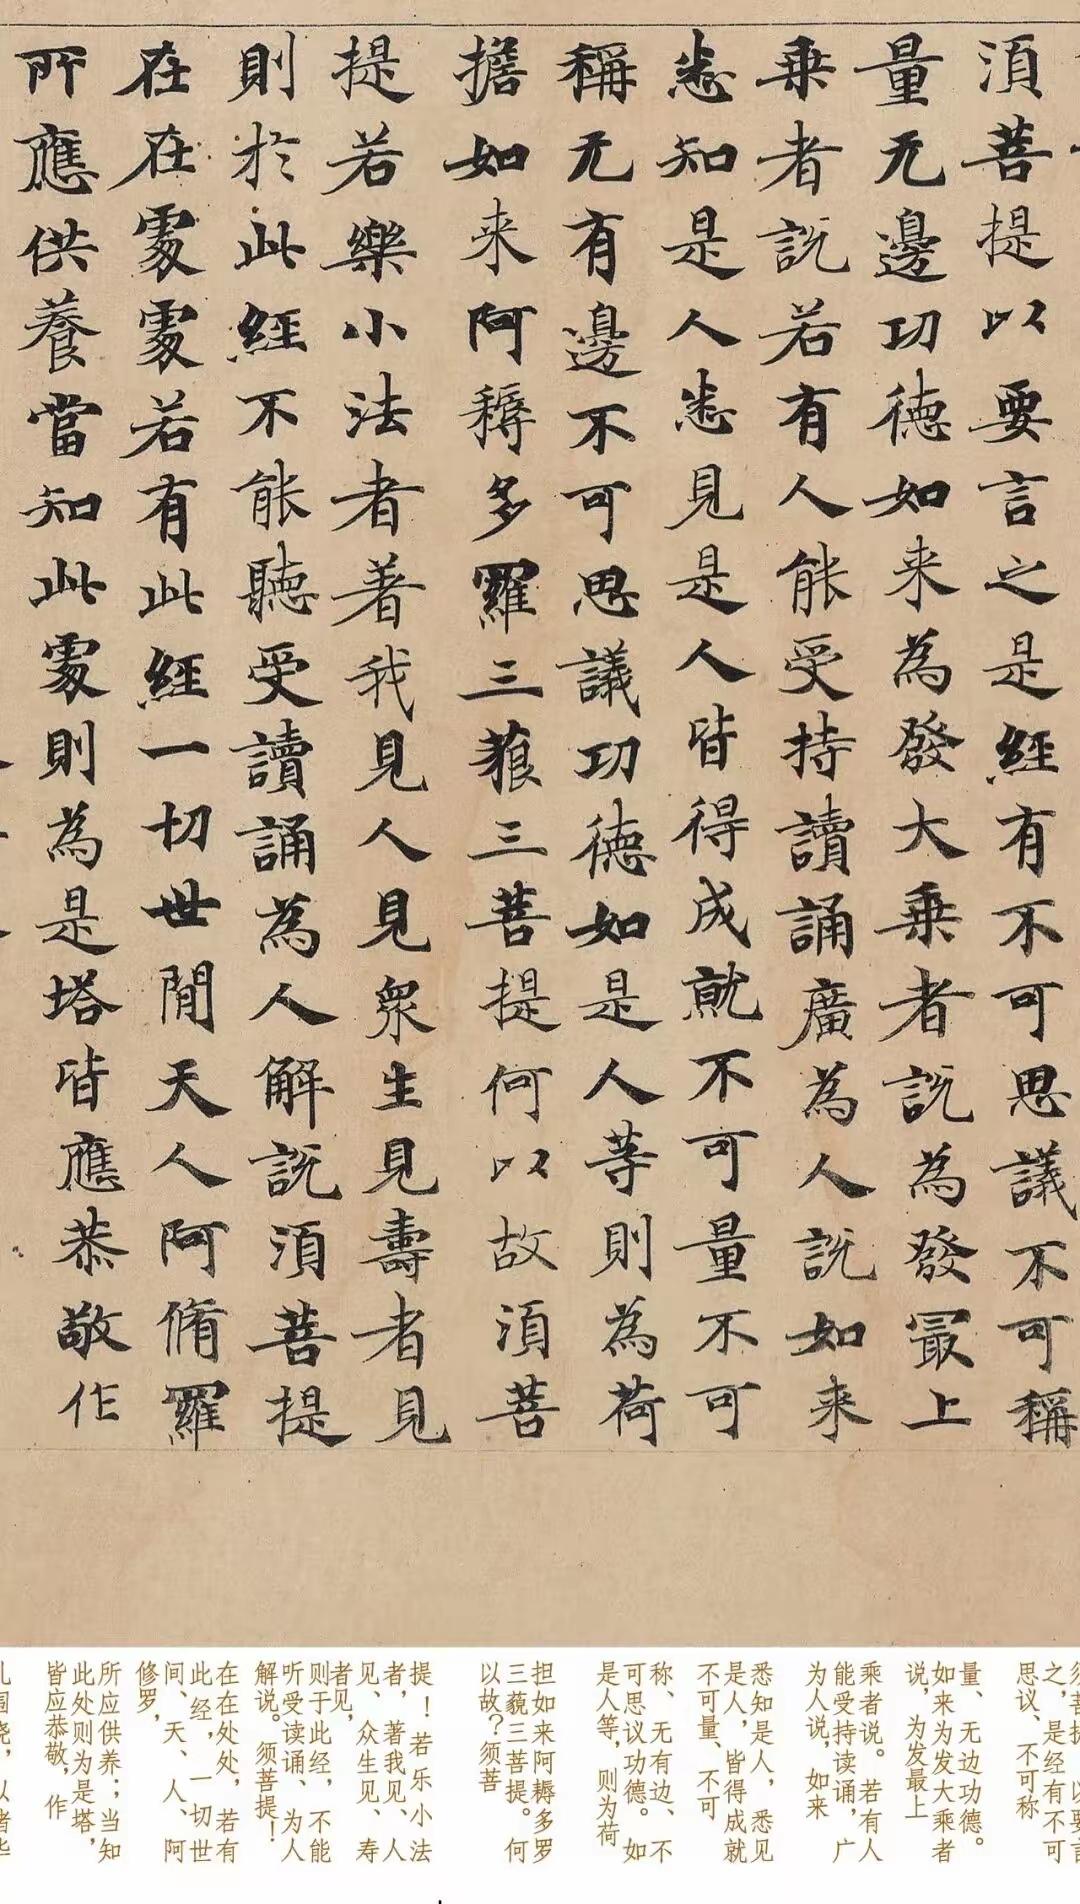 須菩提以要言之是經有不可思議不可稱
量无邊功德如来為發大乗者說為發冣上
乗者說若有人能受持讀誦廣為人說如来
悉知是人悉見是人皆得成就不可量不可
稱无有邊不可思議功德如是人等則為荷
擔如来阿耨多羅三藐三菩提何以故須菩
提若樂小法者著我見人見衆生見壽者見
則於此經不能聽受讀誦為人解說須菩提
在在處處若有此經一切世間天人阿脩羅
所應供養當知此處則為是塔皆應恭敬作
之，是经有不可
思议、不可称
量、无边功德。
如来为发大乘者
说，为发最上
乘者说。若有人
能受持读诵，广
为人说，如来
悉知是人，悉见
是人，皆得成就
不可量、不可
称、无有边、不
可思议功德。如
是人等，则为荷
担如来阿耨多罗
三藐三菩提。何
以故？须菩
提！若乐小法
者，著我见、人
见、众生见、寿
者见，
则于此经，不能
听受读诵、为人
解说。须菩提！
在在处处，若有
此经，一切世
间、天、人、阿
修罗，
所应供养；当知
此处则为是塔，
皆应恭敬，作